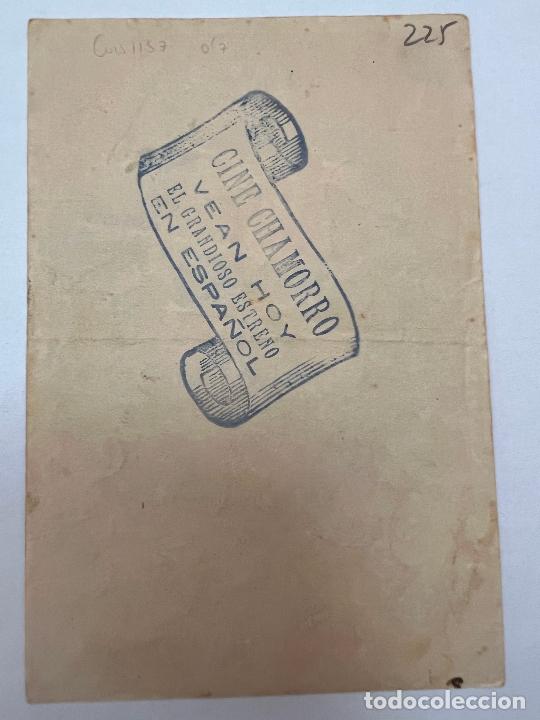 225
CINE CHAMORRO
VEAN HOY
EL GRANDIOSO ESTRENO
EN ESPAÑOL
todocoleccion.net